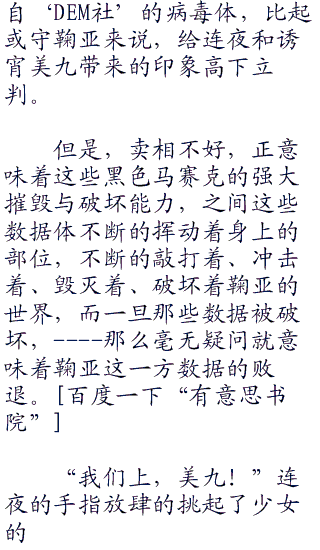 自‘DEM社’的病毒体，比起
或守鞠亚来说，给连夜和诱
宵美九带来的印象高下立
判。
但是，卖相不好，正意
味着这些黑色马赛克的强大
摧毁与破坏能力，之间这些
数据体不断的挥动着身上的
部位，不断的敲打着、冲击
着、毁灭着、破坏着鞠亚的
世界，而一旦那些数据被破
坏，----那么毫无疑问就意
味着鞠亚这一方数据的败
退。[百度一下“有意思书
院”]
“我们上，美九！”连
夜的手指放肆的挑起了少女
的